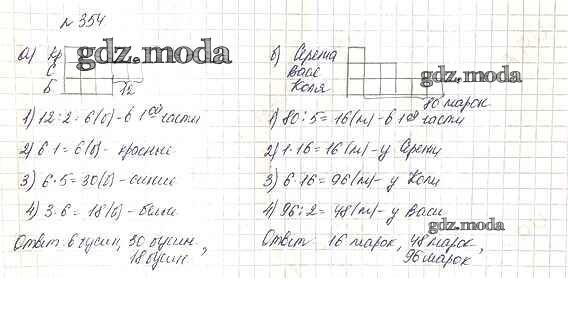 № 354
а) кр
С
Б 12
gdz.moda
1) 12:2=6(б)-в 1ой части
2) 6·1=6(б)- красные
3) 6·5=30(б)-синие
4) 3·6=18(б)-белые
Ответ: 6 бусин, 30 бусин,
18 бусин
б) Сережа
Вася
Коля
gdz.moda
80 марок
1) 80:5=16(м)-в 1ой части
2) 1·16=16(м)-у Сережи
3) 6·16=96(м)-у Коли
4) 96:2=48(м)-у Васи
gdz.moda
Ответ 16 марок, 48 марок,
96 марок